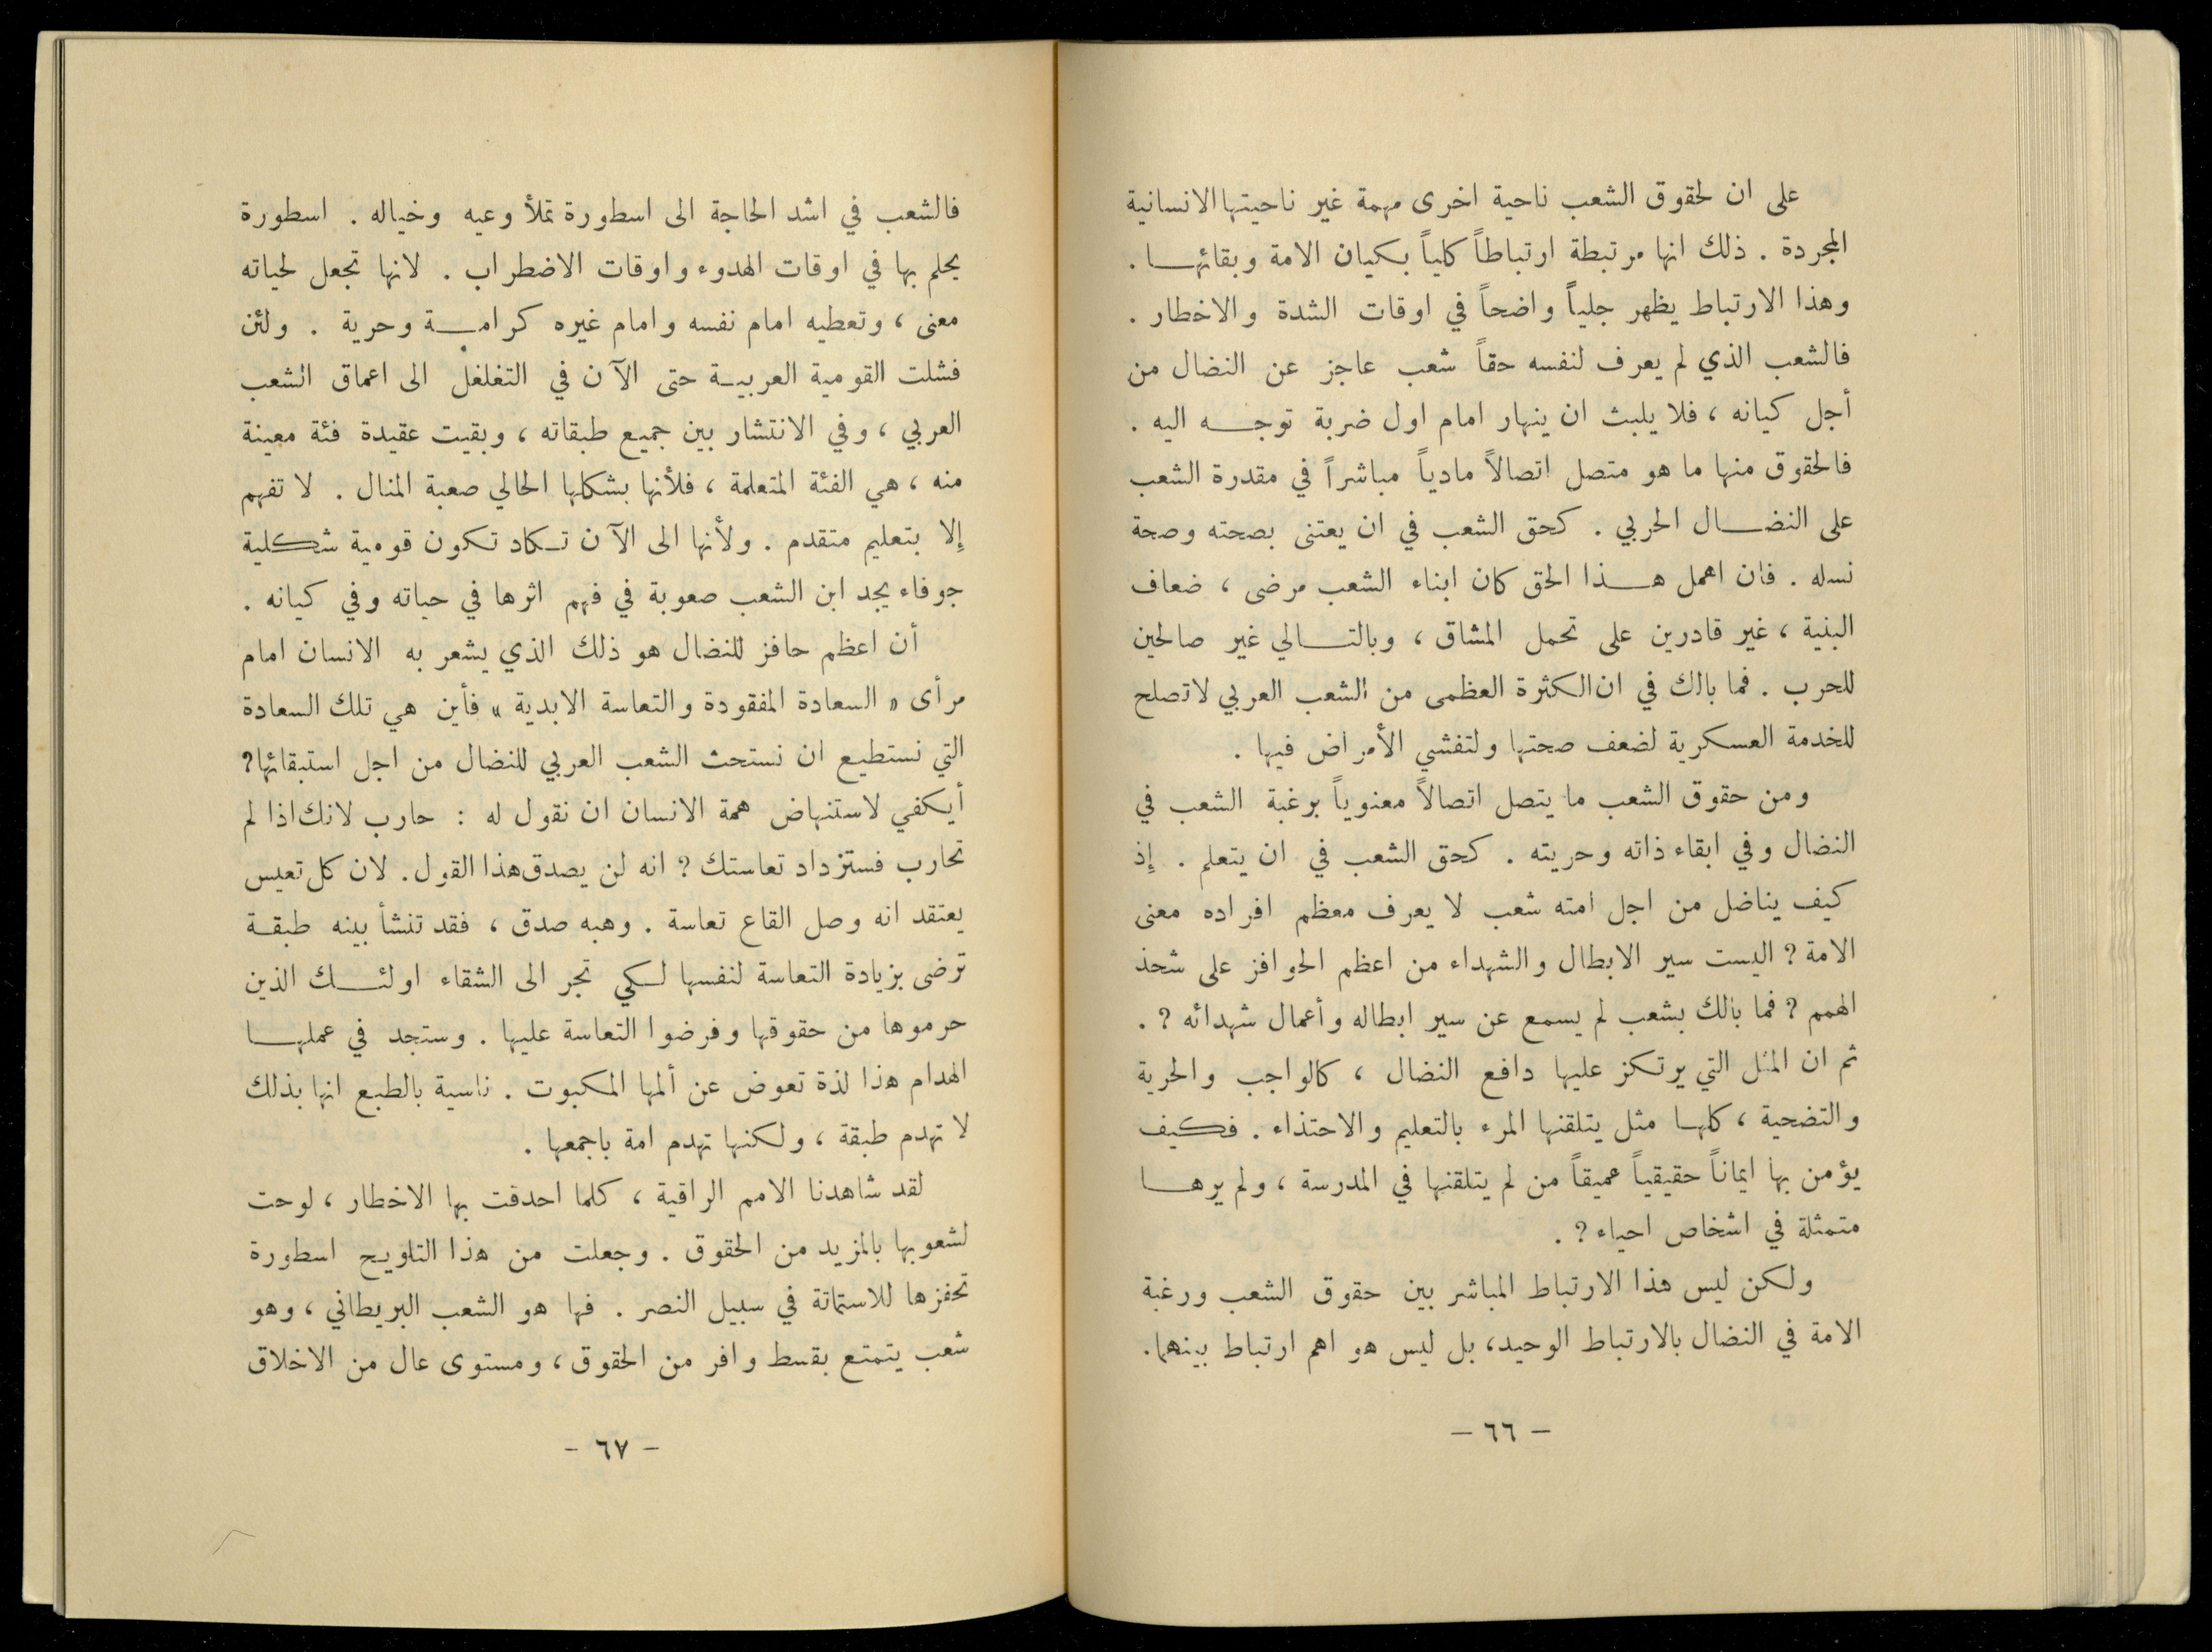 على ان لحقوق الشعب ناحية اخرى مهمة غير ناحيتها الانسانية
المجردة . ذلك انها مرتبطة ارتباطاً كلياً بكيان الامة وبقائهـا .
وهذا الارتباط يظهر جلياً واضحاً في اوقات الشدة والاخطار .
فالشعب الذي لم يعرف لنفسه حقاً شعب عاجز عن النضال من
أجل كيانه ، فلا يلبث ان ينهار امام اول ضربة توجـه اليه .
فالحقوق منها ما هو متصل اتصالاً مادياً مباشراً في مقدرة الشعب
على النضـال الحربي . كحق الشعب في ان يعتنى بصحته وصحة
نسله . فان اهمل هـذا الحق كان ابناء الشعب مرضى ، ضعاف
البنية ، غير قادرين على تحمل المشاق ، وبالتـالي غير صالحين
للحرب . فما بالك في ان الكثرة العظمى من الشعب العربي لا تصلح
للخدمة العسكرية لضعف صحتها ولتفشي الأمراض فيها .
ومن حقوق الشعب ما يتصل اتصالاً معنوياً برغبة الشعب في
النضال وفي ابقاء ذاته وحريته . كحق الشعب في ان يتعلم . إذ
كيف يناضل من اجل امته شعب لا يعرف معظم افراده معنى
الامة ? اليست سير الابطال والشهداء من اعظم الحوافز على شحذ
الهمم ? فما بالك بشعب لم يسمع عن سير ابطاله وأعمال شهدائه ? .
ثم ان المثل التي يرتكز عليها دافع النضال ، كالواجب والحرية
والتضحية ، كلهـا مثل يتلقنها المرء بالتعليم والاحتذاء . فكيف
يؤمن بها ايماناً حقيقياً عميقاً من لم يتلقنها في المدرسة ، ولم يرهـا
متمثلة في اشخاص احياء ? .
ولكن ليس هذا الارتباط المباشر بين حقوق الشعب ورغبة
الامة في النضال بالارتباط الوحيد، بل ليس هو اهم ارتباط بينهما.
— ٦٦ —
فالشعب في اشد الحاجة الى اسطورة تملأ وعيه وخياله . اسطورة
يحلم بها في اوقات الهدوء واوقات الاضطراب . لانها تجعل لحياته
معنى ، وتعطيه امام نفسه وامام غيره كرامـة وحرية . ولئن
فشلت القومية العربيـة حتى الآن في التغلغل الى اعماق الشعب
العربي ، وفي الانتشار بين جميع طبقاته ، وبقيت عقيدة فئة معينة
منه ، هي الفئة المتعلمة ، فلأنها بشكلها الحالي صعبة المنال . لا تفهم
إلا بتعليم متقدم . ولأنها الى الآن تـكاد تكون قومية شكلية
جوفاء يجد ابن الشعب صعوبة في فهم اثرها في حياته وفي كيانه .
أن اعظم حافز للنضال هو ذلك الذي يشعر به الانسان امام
مرأى « السعادة المفقودة والتعاسة الابدية » فأين هي تلك السعادة
التي نستطيع ان نستحث الشعب العربي للنضال من اجل استبقائها?
أيكفي لاستنهاض همة الانسان ان نقول له : حارب لانك اذا لم
تحارب فستزداد تعاستك ? انه لن يصدق هذا القول. لان كل تعيس
يعتقد انه وصل القاع تعاسة . وهبه صدق ، فقد تنشأ بينه طبقـة
ترضى بزيادة التعاسة لنفسها لـكي تجر الى الشقاء اولئـك الذين
حرموها من حقوقها وفرضوا التعاسة عليها . وستجد في عملهـا
الهدام هذا لذة تعوض عن ألمها المكبوت . ناسية بالطبع انها بذلك
لا تهدم طبقة ، ولكنها تهدم امة باجمعها .
لقد شاهدنا الامم الراقية ، كلما احدقت بها الاخطار ، لوحت
لشعوبها بالمزيد من الحقوق . وجعلت من هذا التلويح اسطورة
تحفزها للاستماتة في سبيل النصر . فها هو الشعب البريطاني ، وهو
شعب يتمتع بقسط وافر من الحقوق ، ومستوى عال من الاخلاق
- ٦٧ -